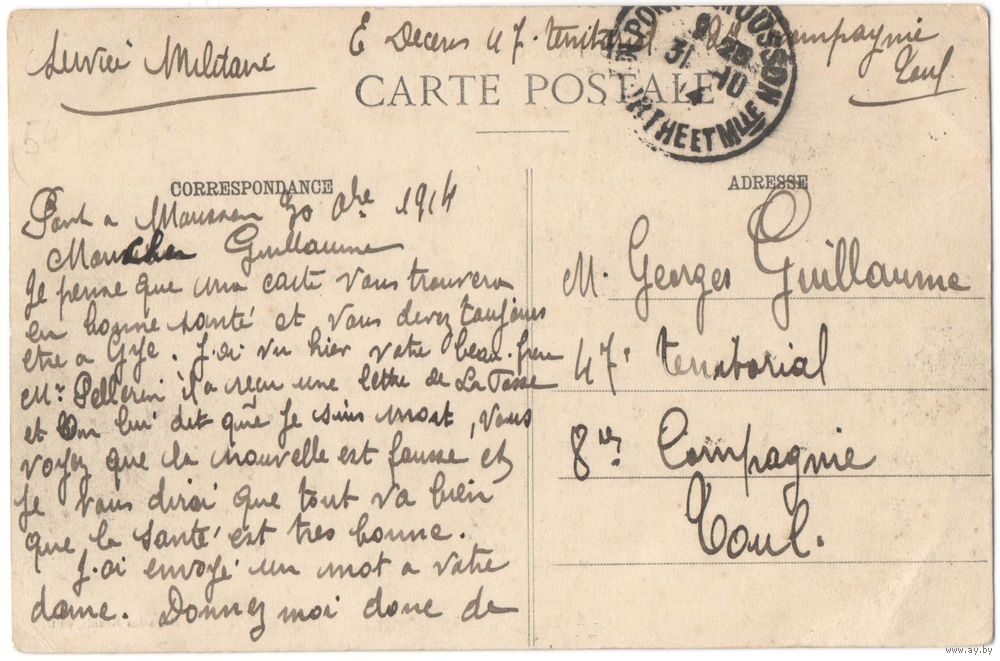 Service Militaire
E Decens 47e territorial 8e Compagnie
Toul
CARTE POSTALE
PONT-A-MOUSSON
9 25
31 -10
14
MRTHE ET MLLE
CORRESPONDANCE
ADRESSE
Pont a Mousson 30 Obre 1914
Mon cher Guillaume
Je pense que ma carte vous trouvera
en bonne santé et vous devez toujours
etre a Gye. J'ai vu hier votre beau-frere
Mr Pellerin il a reçu une lettre de La Fosse
et on lui dit que je suis mort, vous
voyez que la nouvelle est fausse et
je vous dirai que tout va bien
que la santé est tres bonne.
J'ai envoyé un mot a votre
dame. Donnez moi donc de
M. Georges Guillaume
47e territorial
8e Compagnie
Toul.
www.ay.by